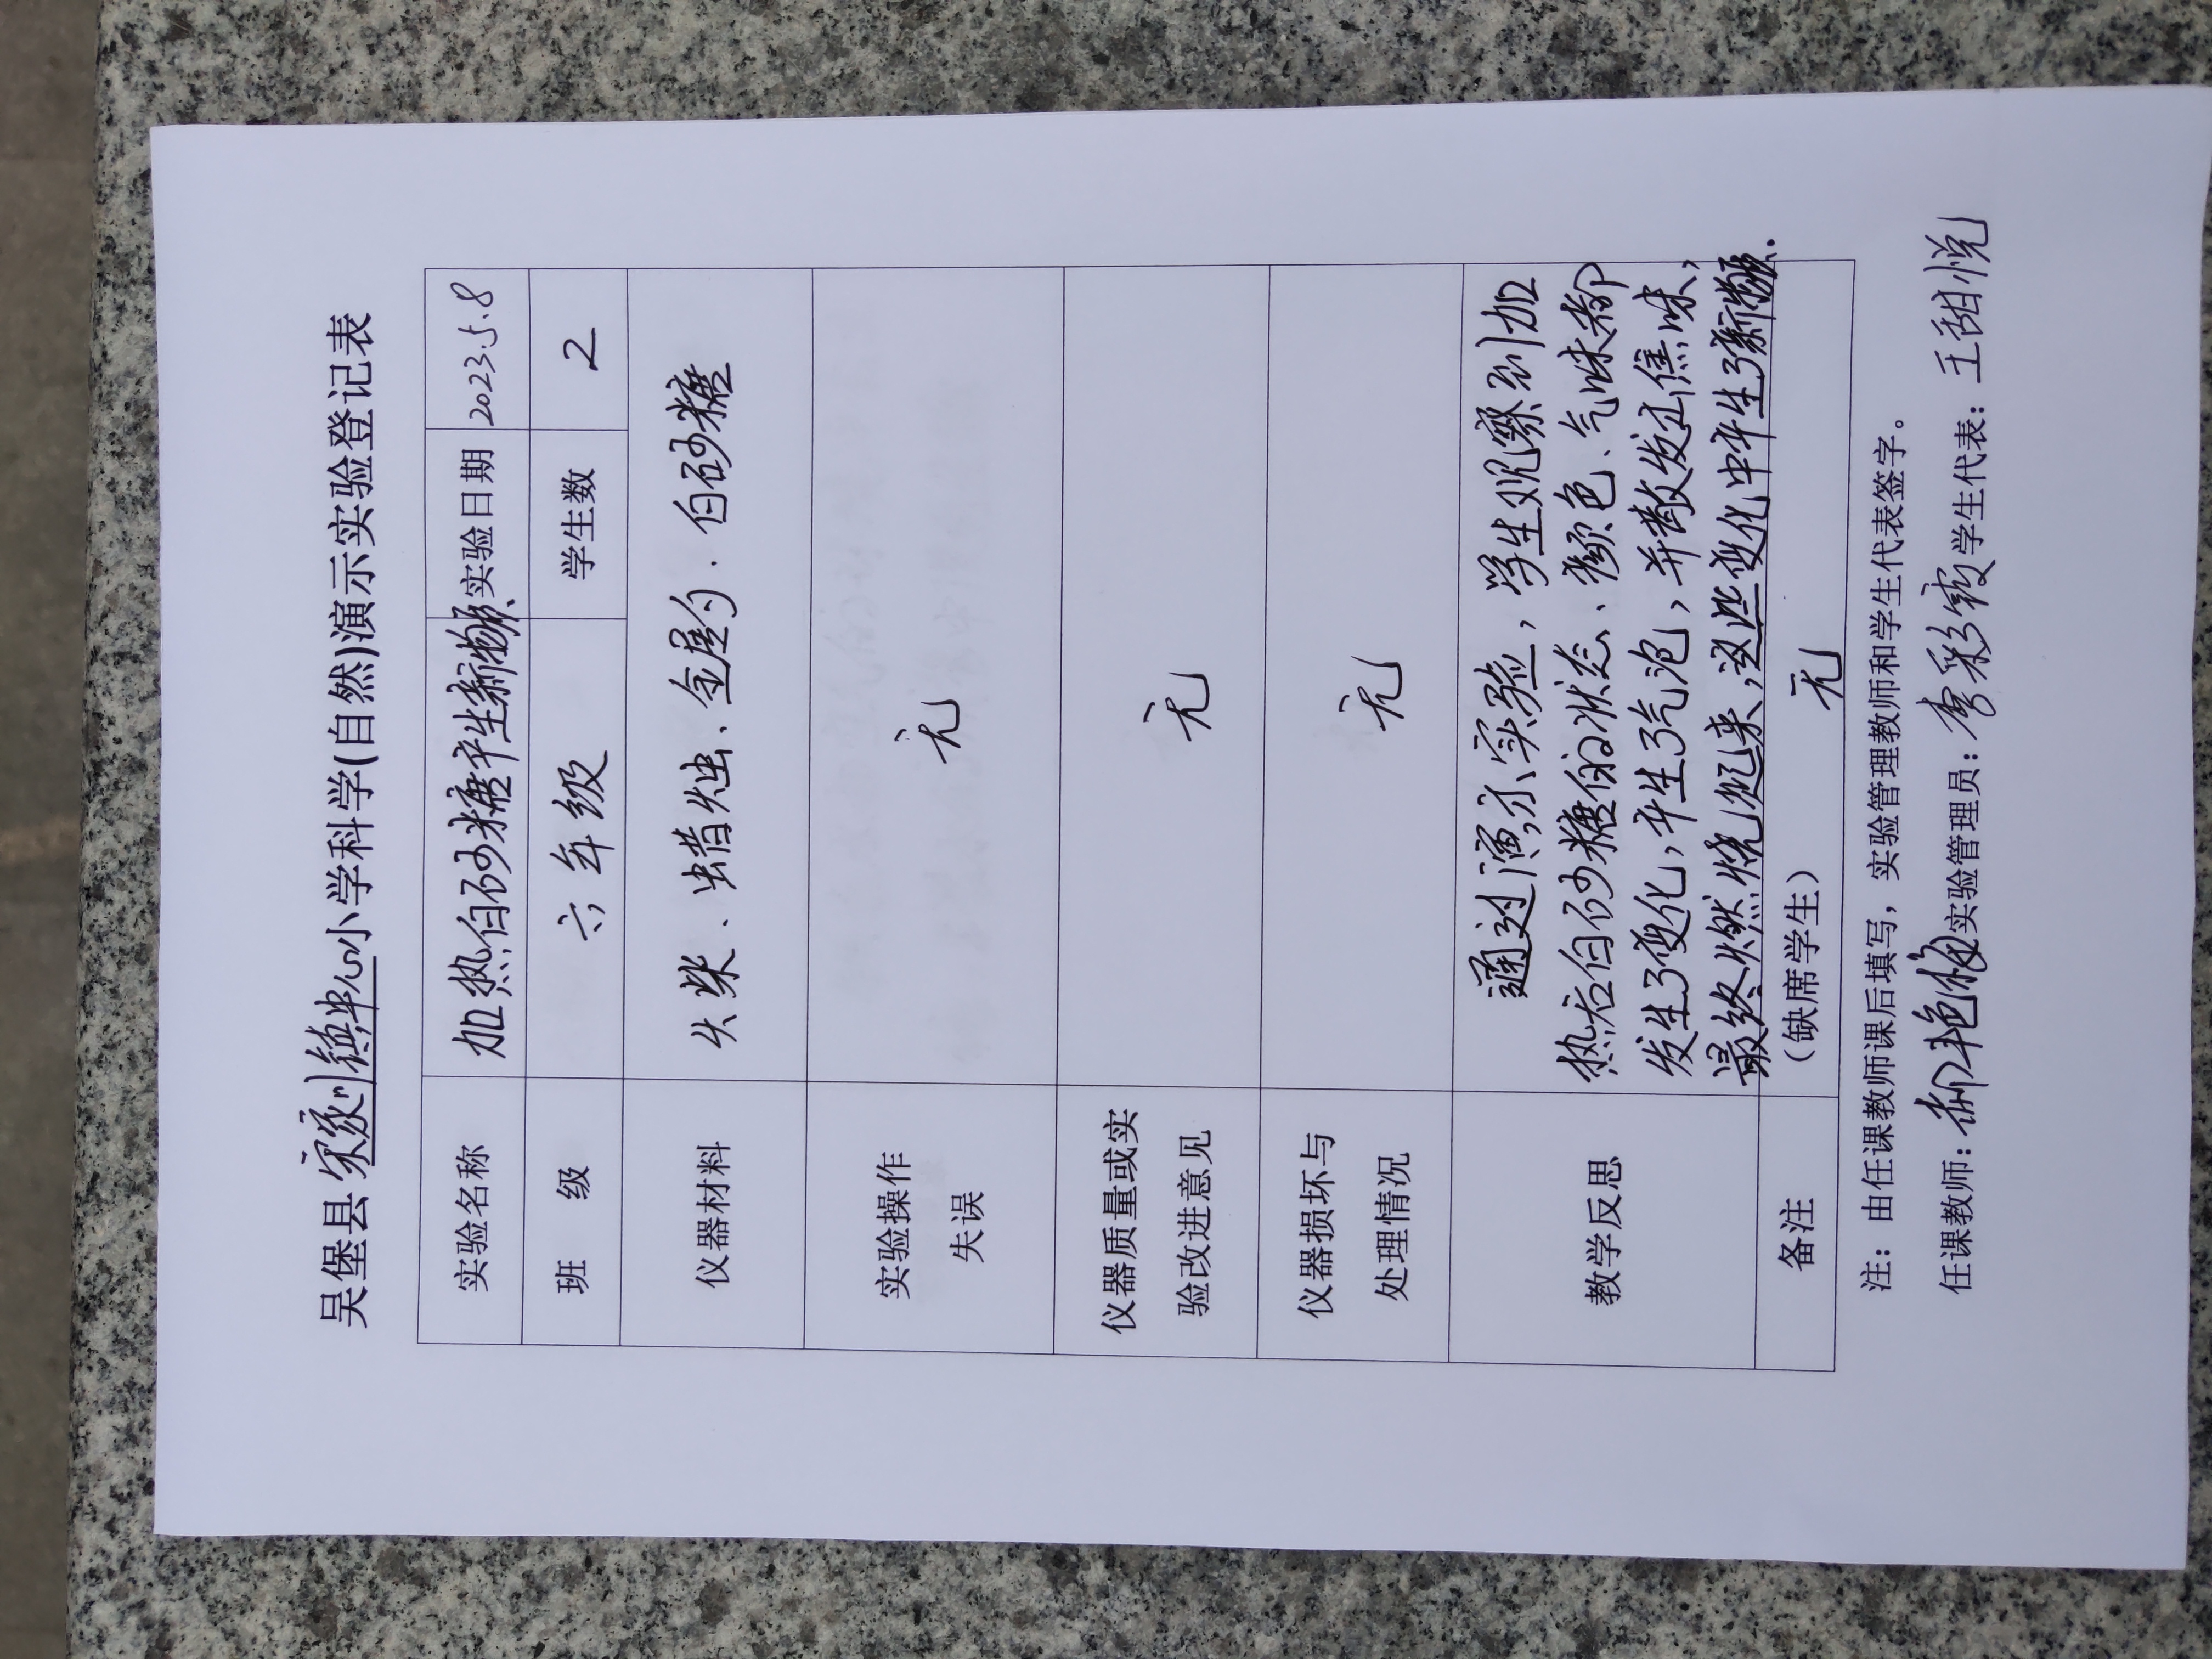 吴堡县宋家川镇中心小学科学(自然)演示实验登记表
实验名称 加热白砂糖产生新物质 实验日期 2023.5.8
班 级 六年级 学生数 2
仪器材料 火柴、蜡烛、金属勺、白砂糖
实验操作
失误
无
仪器质量或实
验改进意见
无
仪器损坏与
处理情况
无
教学反思
通过演示实验，学生观察到加
热后白砂糖的状态、颜色、气味都
发生了变化，产生了气泡，并散发过焦味，
最终燃烧起来，这些变化中产生了新物质.
备注 （缺席学生） 无
注：由任课教师课后填写，实验管理教师和学生代表签字。
任课教师：郝艳梅 实验管理员：李彩霞 学生代表：王甜悦